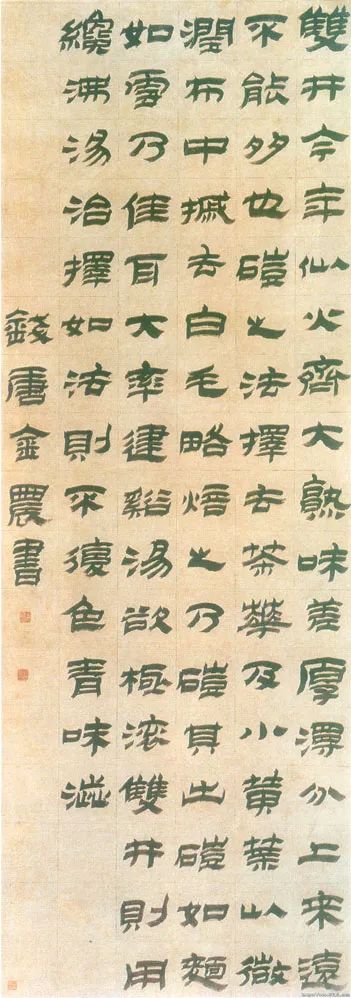 雙井今年仙火齊大熟味差厚澤上來遠
不能多也磑之法擇去茶華及小黃葉以微
潤布中搣去白毛略焙之乃磑其出磑如麵
如雪乃佳耳大率建谿湯欲極滾雙井則用
纔沸湯治擇如法則不復色青味澁
錢唐金農書